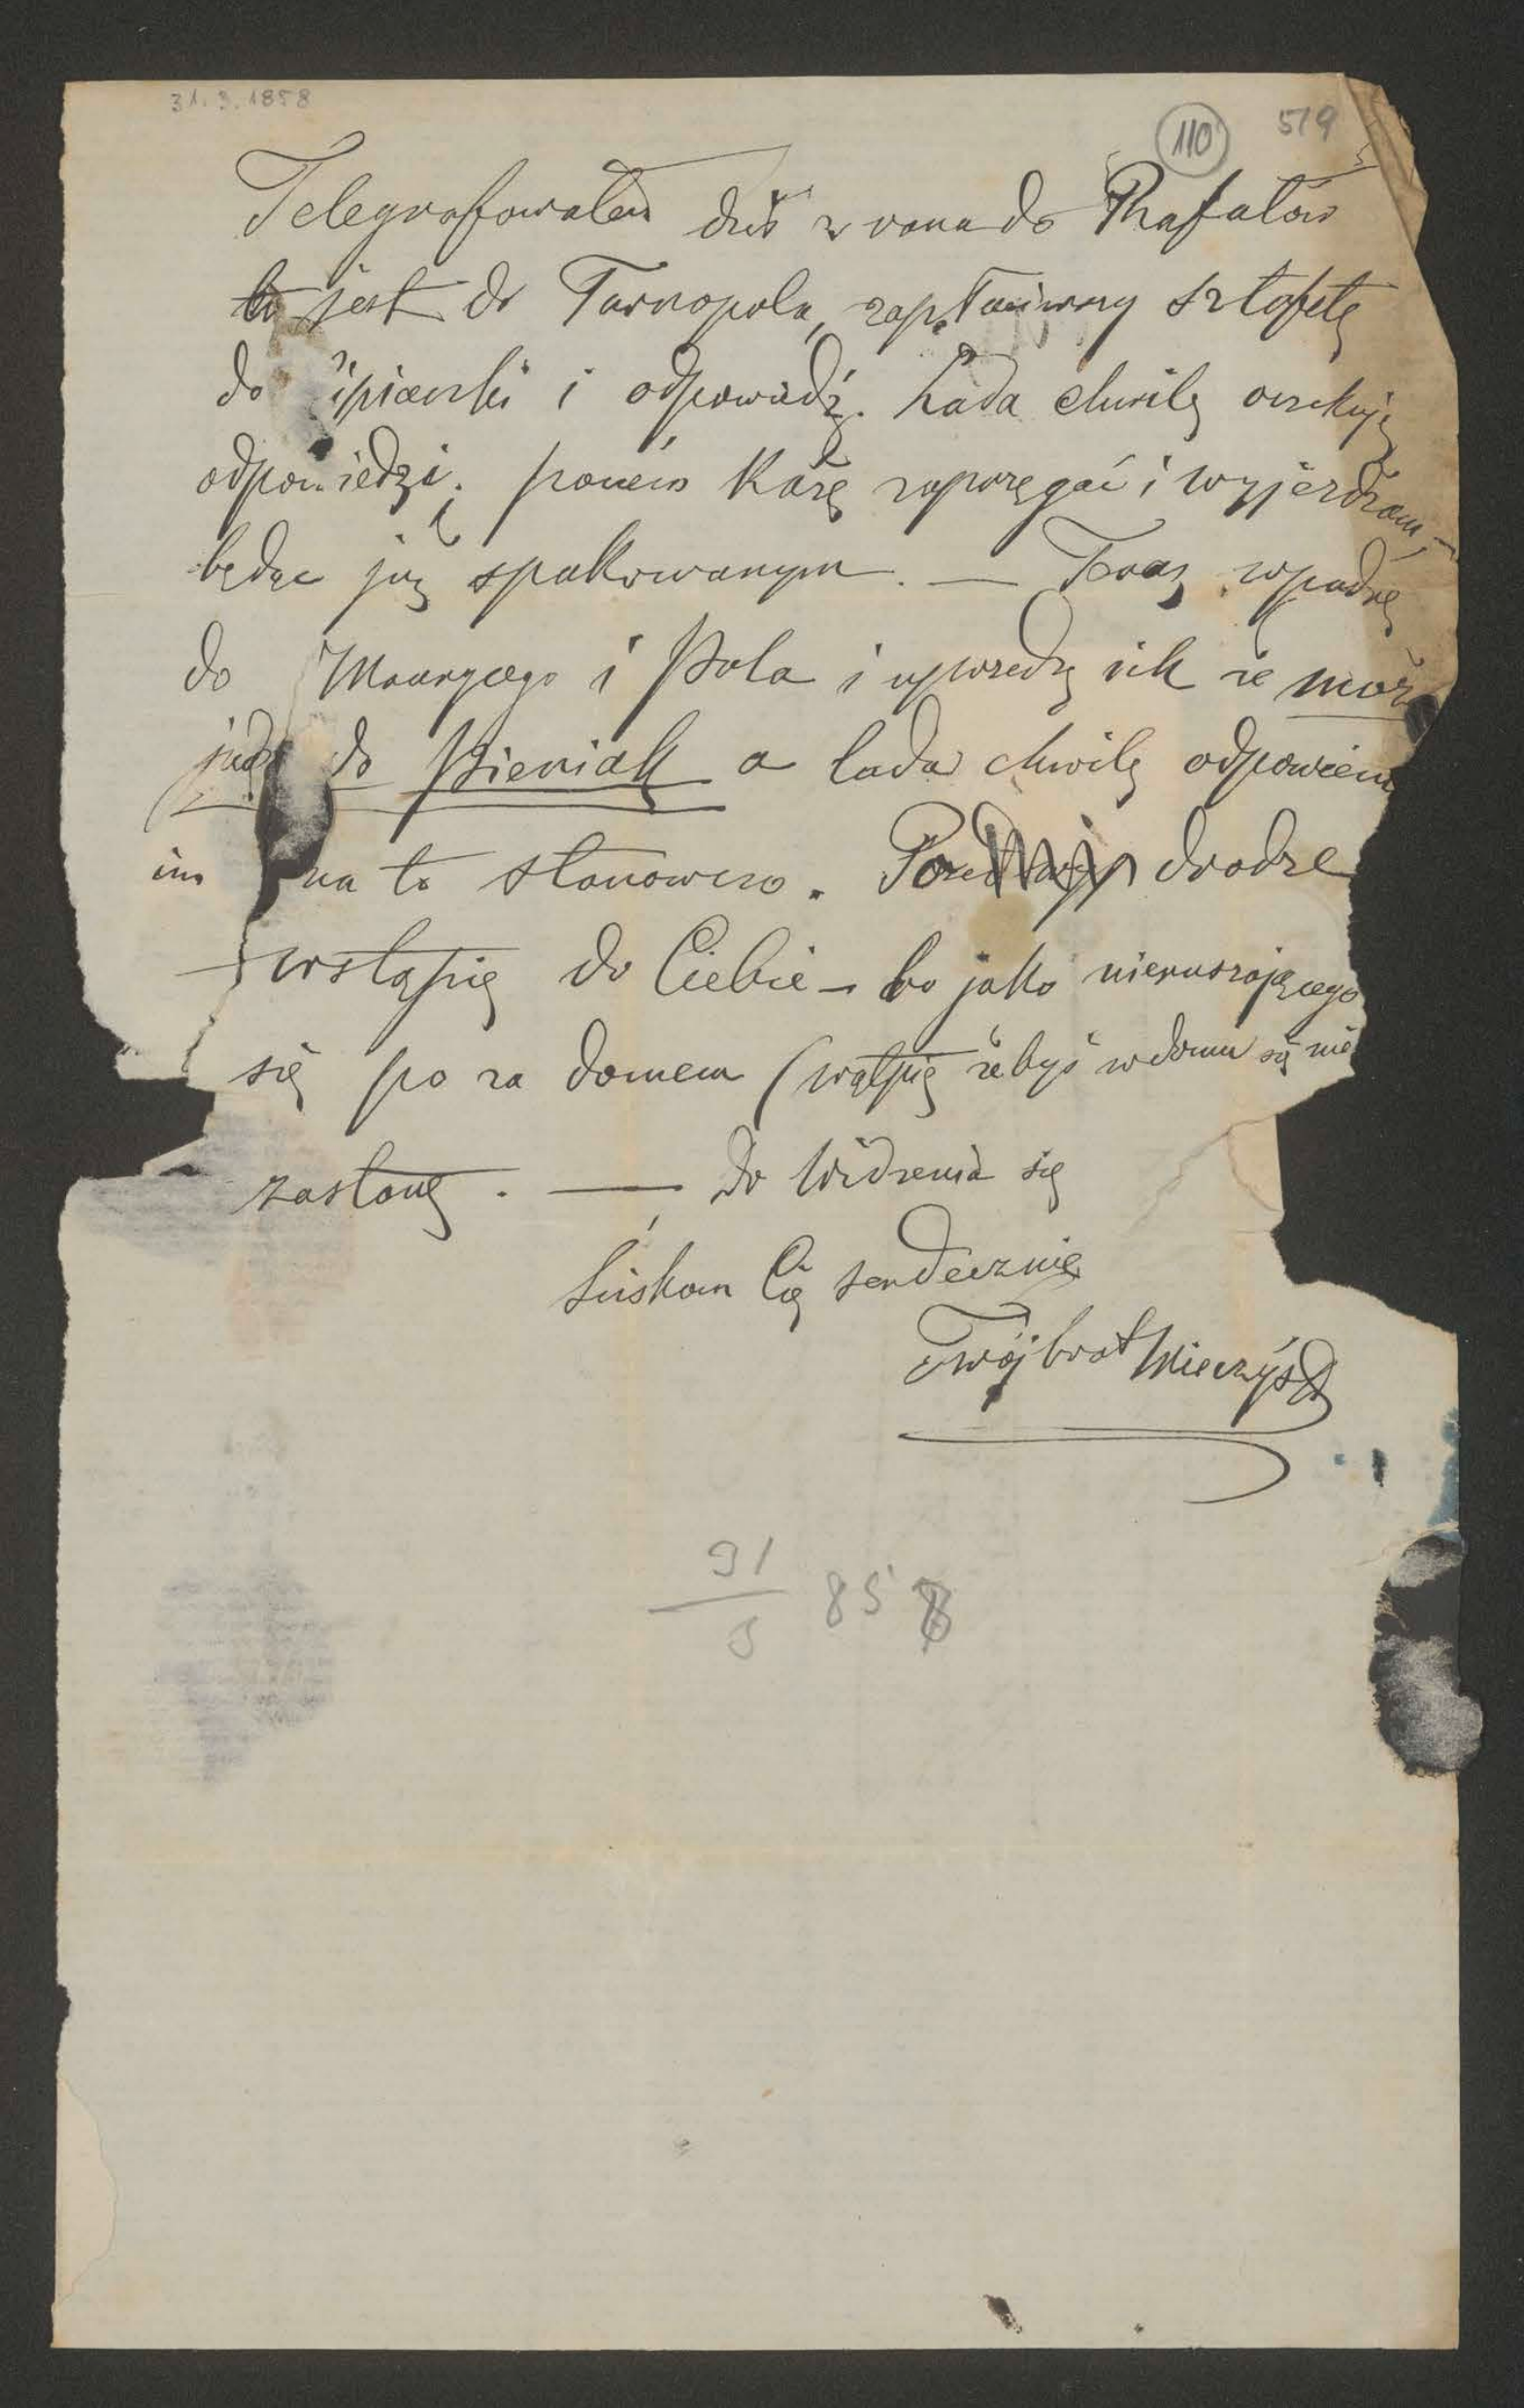 31.3.1858
110 519
Telegrafowałem dziś z rana do Rafałów
to jest do Tarnopola, zapłaciwszy sztafetę
do i odpowiedź. Lada chwilę oczekuję
odpowiedzi. każę zaprzęgać i wyjeżdżam,
będąc już spakowanym. — Teraz wpadnę
do Maurycego i Pola i uprzedzę ich że może
jadę do Pieniak a lada chwilę odpowiem
im na to stanowczo. drodze
wstąpię do Ciebie — bo jako nieruszającego
się po za domem (wątpię żebyś w domu się nie
zastanę. — Do widzenia się
Ściskam Cię serdecznie
Twój brat Mieczysł
31
3 858